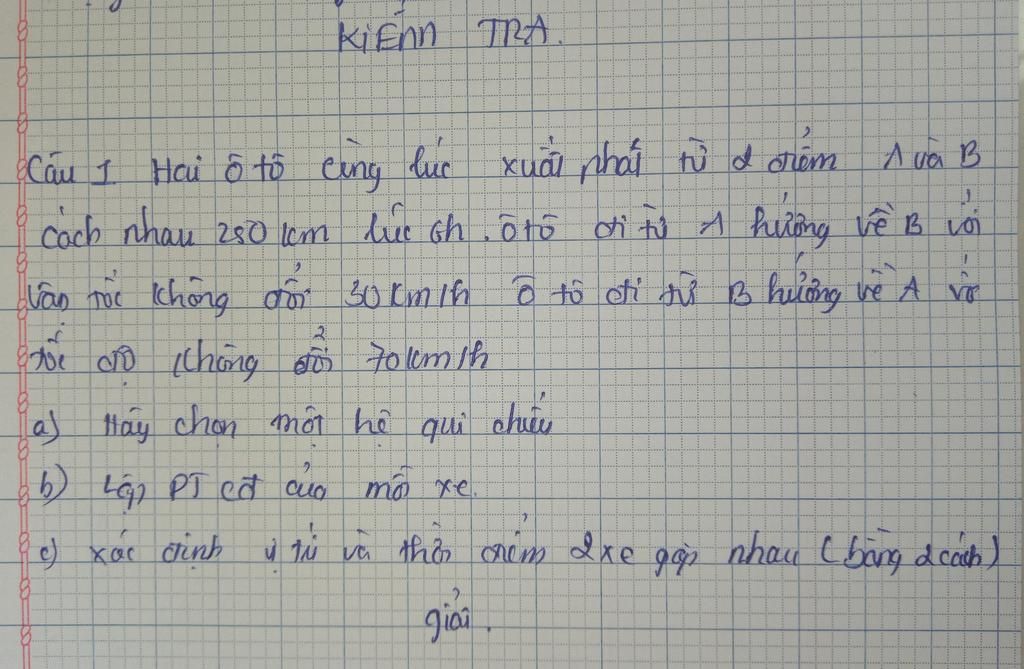 KIỂM TRA.
Câu 1 Hai ô tô cùng lúc xuất phát từ 2 điểm A và B
cách nhau 250 km lúc 6h. ôtô đi từ A hướng về B với
vận tốc không đổi 30 km/h ô tô đi từ B hướng về A với
tốc độ không đổi 70 km/h
a) Hãy chọn một hệ qui chiếu
b) Lập PT cđ của mỗi xe.
c) xác định vị trí và thời điểm 2 xe gặp nhau (bằng 2 cách)
giải.